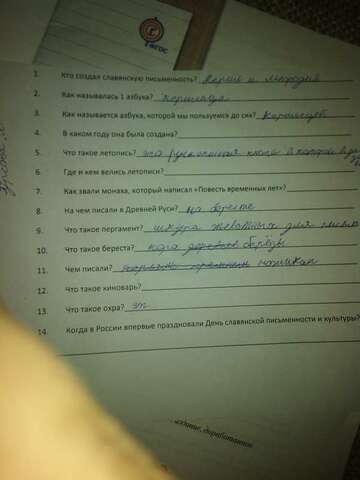 ФГОС
1. Кто создал славянскую письменность? Кирилл и Мефодий
2. Как называлась 1 азбука? Кириллица
3. Как называется азбука, которой мы пользуемся до сих?
4. В каком году она была создана?
5. Что такое летопись? это рукописная книга в которой
6. Где и кем велись летописи?
7. Как звали монаха, который написал «Повесть временных лет»?
8. На чем писали в Древней Руси? на бересте
9. Что такое пергамент? шкура животных для письма
10. Что такое береста? кора деревьев берёзы
11. Чем писали?
12. Что такое киноварь?
13. Что такое охра? эт
14. Когда в России впервые праздновали День славянской письменности и культуры?
издание, доработанное